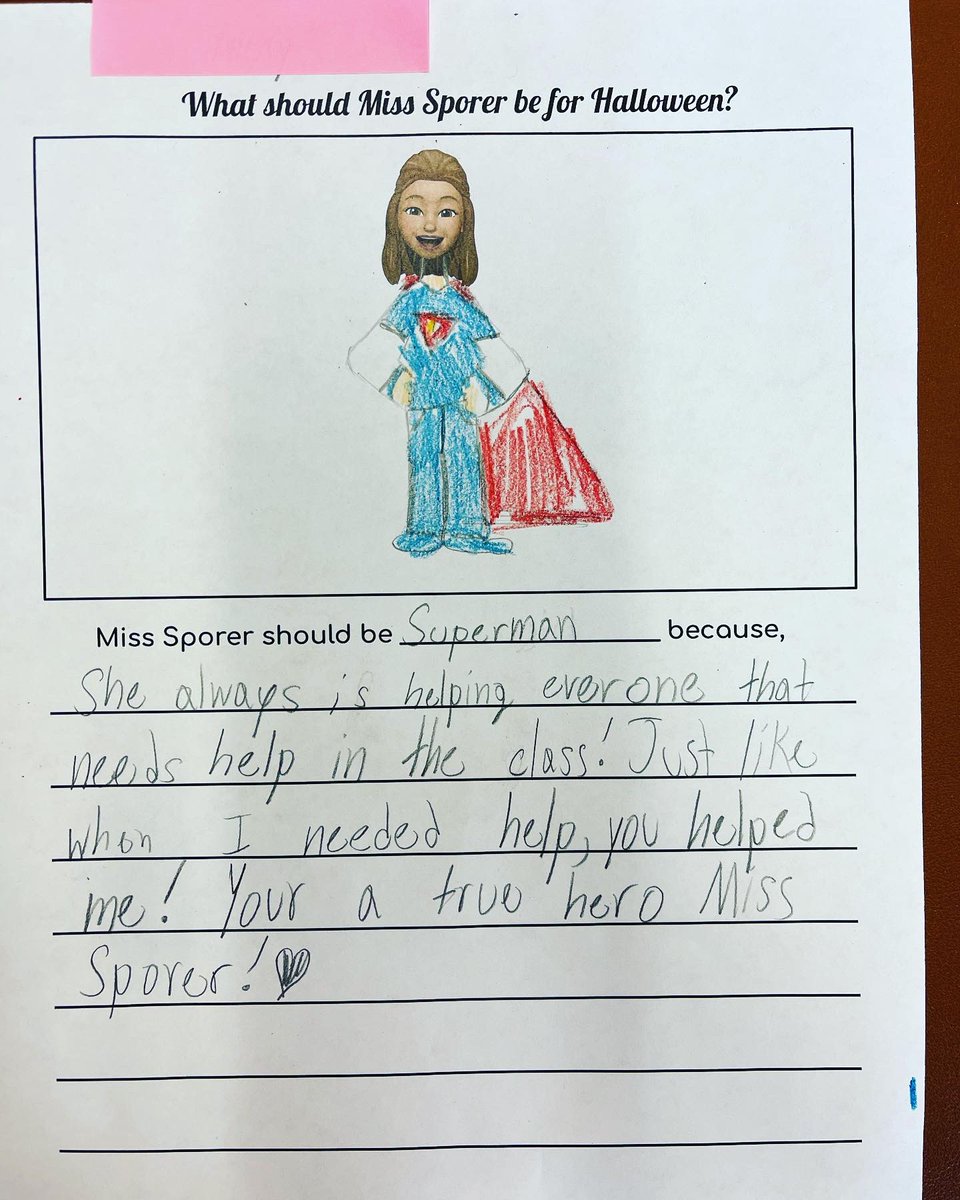 What should Miss Sporer be for Halloween?
Miss Sporer should be Superman because,
She always is helping everone that
needs help in the class! Just like
when I needed help, you helped
me! Your a true hero Miss
Sporer!